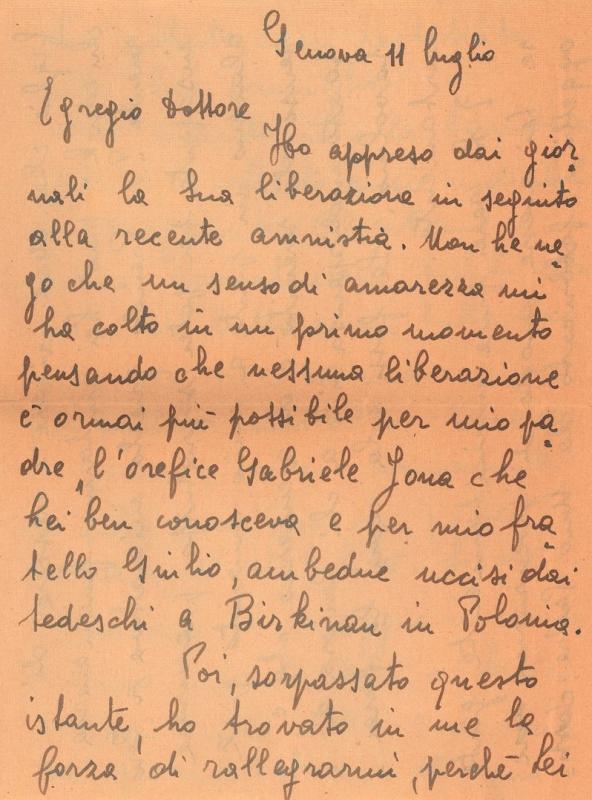 Genova 11 luglio
Egregio Dottore
Ho appreso dai gior=
nali la Sua liberazione in seguito
alla recente amnistia. Non Le ne=
go che un senso di amarezza mi
ha colto in un primo momento
pensando che nessuna liberazione
è ormai più possibile per mio pa=
dre, l'orefice Gabriele Jona che
Lei ben conosceva e per mio fra=
tello Giulio, ambedue uccisi dai
tedeschi a Birkinau in Polonia.
Poi, sorpassato questo
istante, ho trovato in me la
forza di rallegrarmi, perchè Lei